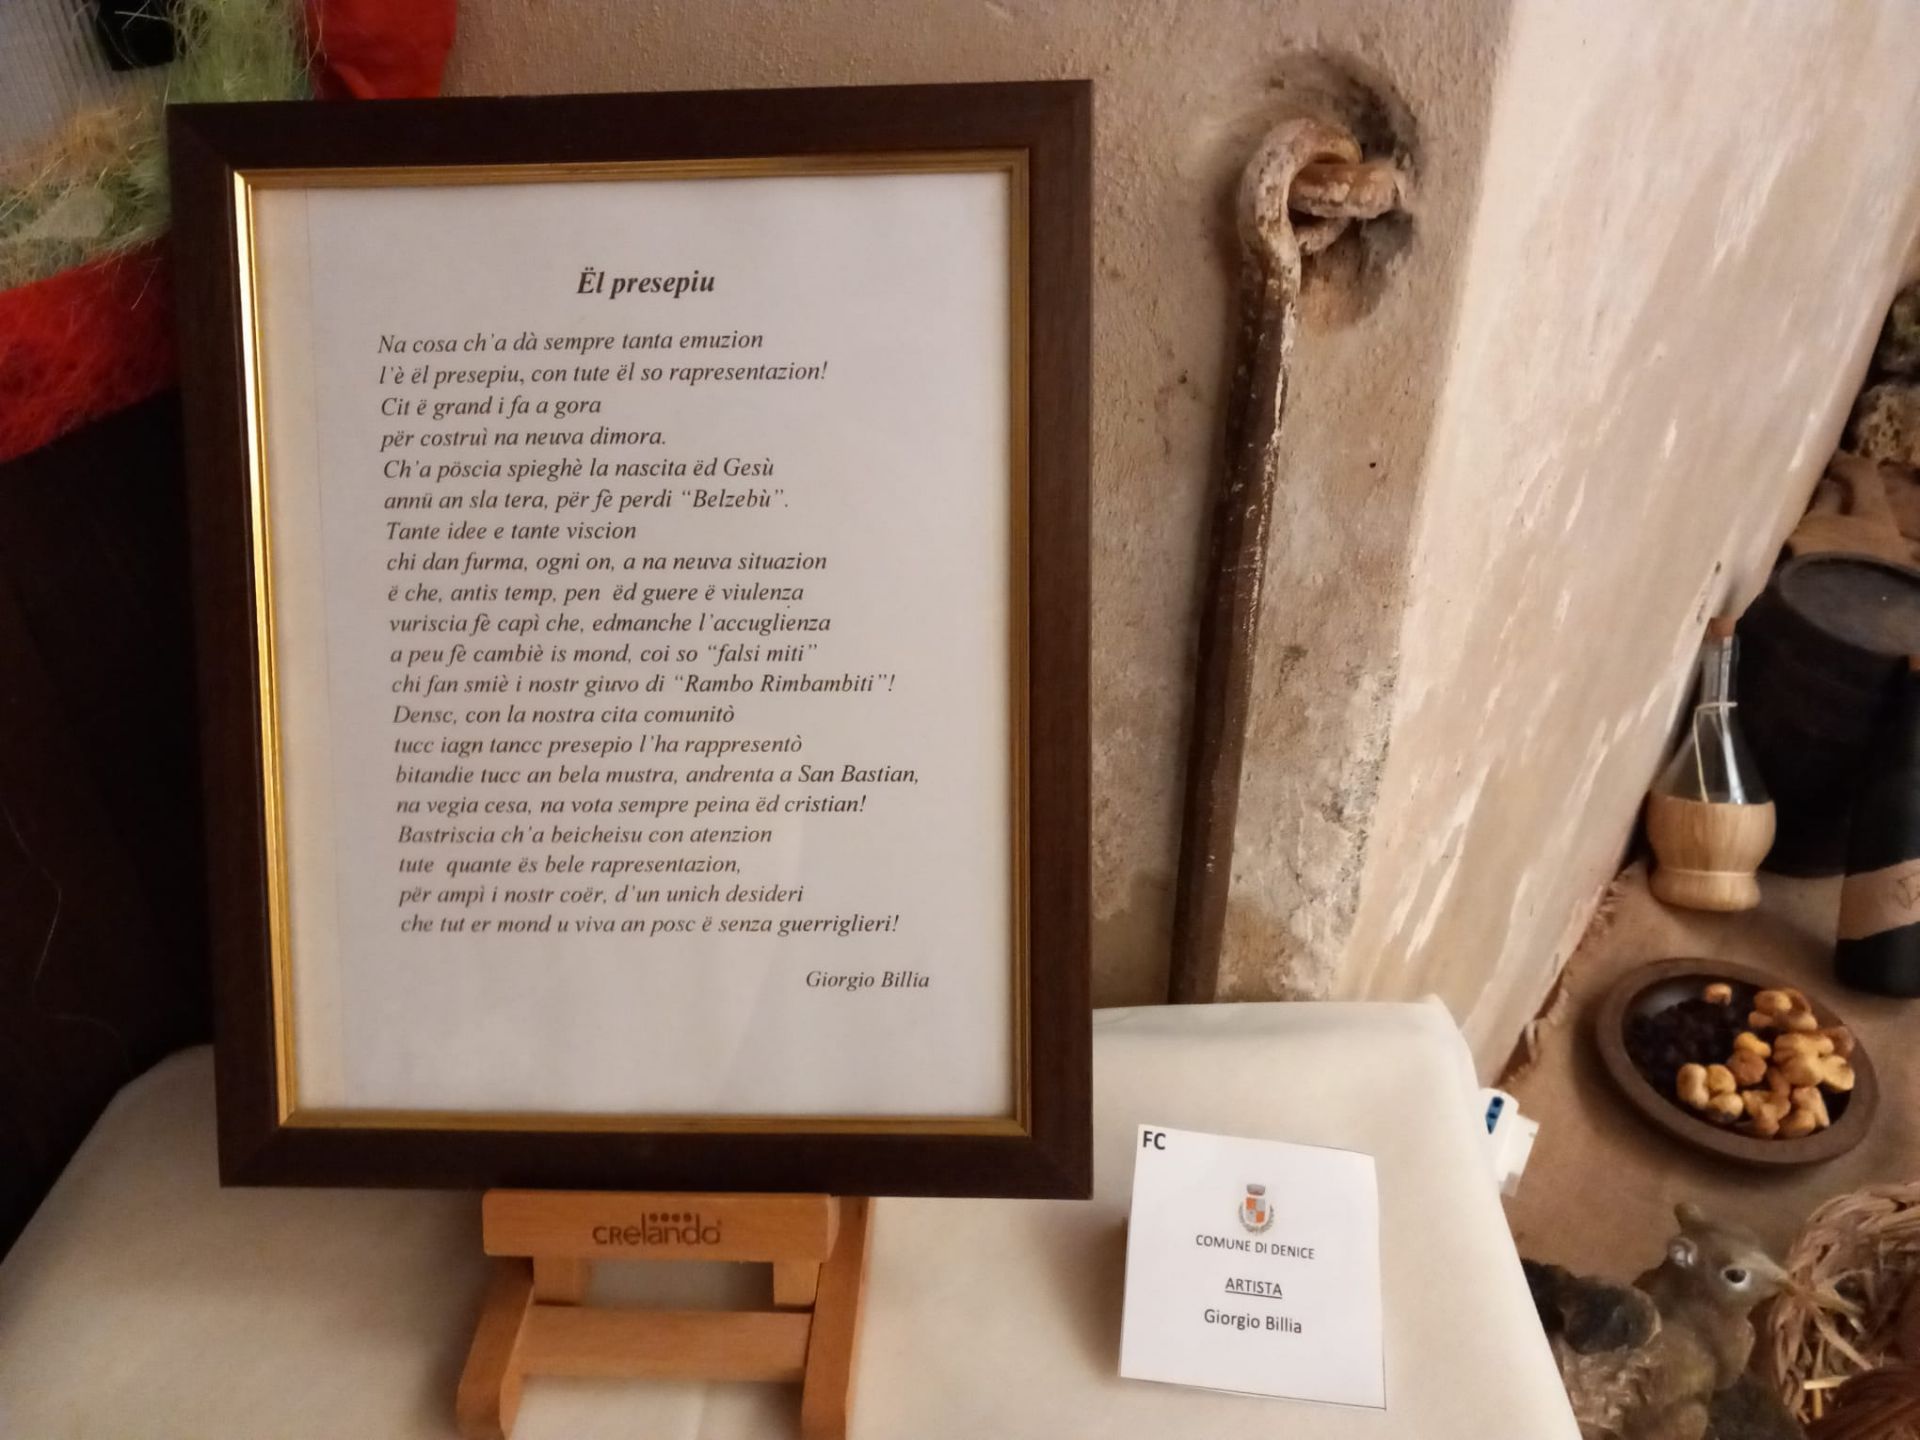 Ël presepiu
Na cosa ch'a dà sempre tanta emuzion
l'è ël presepiu, con tute ël so rapresentazion!
Cit ë grand i fa a gora
për costruì na neuva dimora.
Ch'a pöscia spieghè la nascita ëd Gesù
annü an sla tera, për fè perdi “Belzebù”.
Tante idee e tante viscion
chi dan furma, ogni on, a na neuva situazion
ë che, antis temp, pen ëd guere ë viulenza
vuriscia fè capì che, edmanche l'accuglienza
a peu fè cambiè is mond, coi so “falsi miti”
chi fan smiè i nostr giuvo di “Rambo Rimbambiti”!
Densc, con la nostra cita comunitò
tucc iagn tancc presepio l'ha rappresentò
bitandie tucc an bela mustra, andrenta a San Bastian,
na vegia cesa, na vota sempre peina ëd cristian!
Bastriscia ch'a beicheisu con atenzion
tute quante ës bele rapresentazion,
për ampì i nostr coër, d'un unich desideri
che tut er mond u viva an posc ë senza guerriglieri!
Giorgio Billia
crelando
FC
COMUNE DI DENICE
ARTISTA
Giorgio Billia